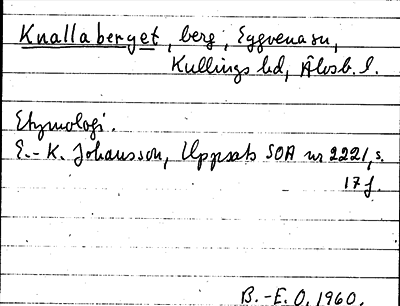 Knallaberget, berg, Eggvena sn,
Kullings hd, Älvsb. l.
Etymologi.
E.-K. Johansson, Uppsats SOA nr 2221, s.
17 f.
B.-E. O. 1960.